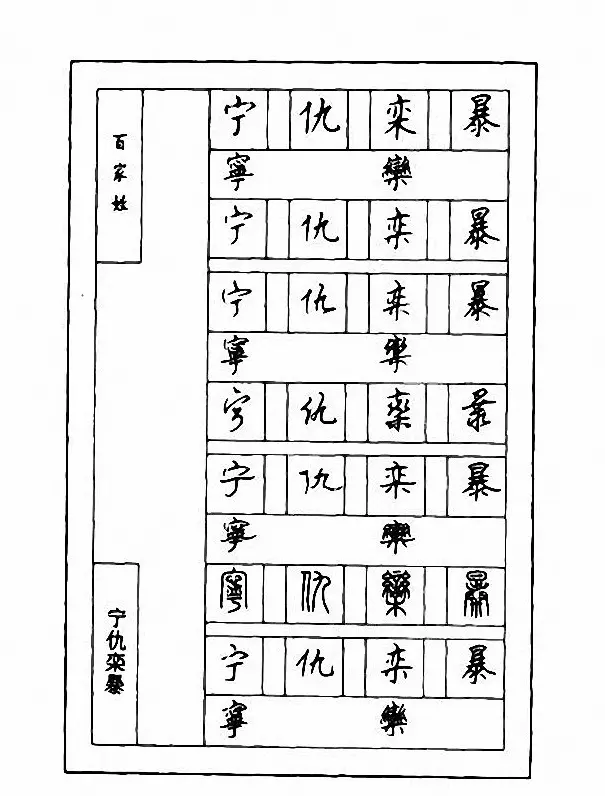 百家姓
宁仇栾暴
宁 仇 栾 暴
寧 欒
宁 仇 栾 暴
宁 仇 栾 暴
寧 欒
宁 仇 栾 暴
宁 仇 栾 暴
寧 欒
寧 仇 欒 暴
宁 仇 栾 暴
寧 欒